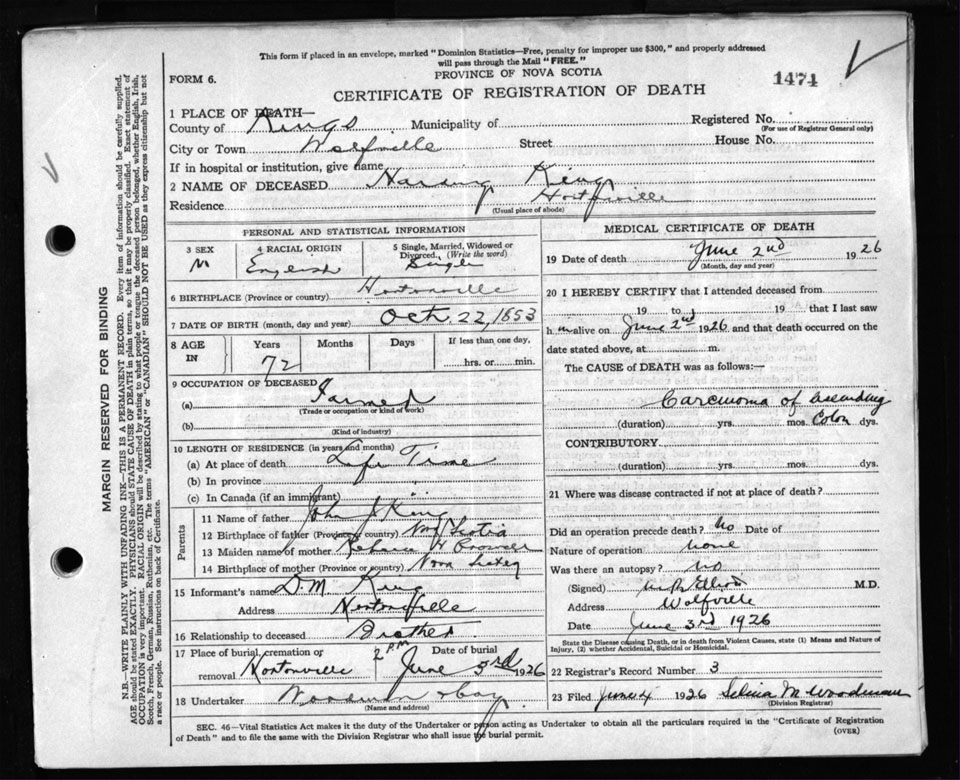 This form if placed in an envelope, marked "Dominion Statistics—Free, penalty for improper use $300," and properly addressed
will pass through the Mail "FREE."
FORM 6.
PROVINCE OF NOVA SCOTIA
1474
CERTIFICATE OF REGISTRATION OF DEATH
1 PLACE OF DEATH—
County of Kings Municipality of Registered No.
(For use of Registrar General only)
City or Town Wolfville Street House No.
If in hospital or institution, give name
2 NAME OF DECEASED King
Residence Hortonville
(Usual place of abode)
PERSONAL AND STATISTICAL INFORMATION
3 SEX M
4 RACIAL ORIGIN English
5 Single, Married, Widowed or
Divorced. (Write the word) Single
6 BIRTHPLACE (Province or country) Hortonville
7 DATE OF BIRTH (month, day and year) Oct. 22, 1853
8 AGE IN Years Months Days If less than one day,
72 hrs. or min.
9 OCCUPATION OF DECEASED
(a) Farmer
(Trade or occupation or kind of work)
(b)
(Kind of industry)
10 LENGTH OF RESIDENCE (in years and months)
(a) At place of death Life Time
(b) In province
(c) In Canada (if an immigrant)
Parents
11 Name of father John King
12 Birthplace of father (Province or country) Nova Scotia
13 Maiden name of mother Rebecca
14 Birthplace of mother (Province or country) Nova Scotia
15 Informant's name D. M. King
Address Hortonville
16 Relationship to deceased Brother
17 Place of burial, cremation or Date of burial
removal Hortonville 2 PM June 3rd 1926
18 Undertaker Woodman
(Name and address)
MEDICAL CERTIFICATE OF DEATH
19 Date of death June 2nd 1926
(Month, day and year)
20 I HEREBY CERTIFY that I attended deceased from
19 to 19 that I last saw
him alive on June 2nd 1926 and that death occurred on
date stated above, at m.
The CAUSE of DEATH was as follows:—
Carcinoma of ascending
(duration) yrs. mos. Colon dys.
CONTRIBUTORY
(duration) yrs. mos. dys.
21 Where was disease contracted if not at place of death?
Did an operation precede death? No Date of
Nature of operation none
Was there an autopsy? no
(Signed) Elliott M.D.
Address Wolfville
Date June 3rd 1926
State the Disease causing Death, or in death from Violent Causes, state (1) Means and Nature of
Injury, (2) whether Accidental, Suicidal or Homicidal.
22 Registrar's Record Number 3
23 Filed June 4 1926 Selina M Woodman
(Division Registrar)
SEC. 46—Vital Statistics Act makes it the duty of the Undertaker or person acting as Undertaker to obtain all the particulars required in the "Certificate of Registration
of Death" and to file the same with the Division Registrar who shall issue the burial permit.
(OVER)
MARGIN RESERVED FOR BINDING
N.B.—WRITE PLAINLY WITH UNFADING INK—THIS IS A PERMANENT RECORD. Every item of information should be carefully supplied.
AGE should be stated EXACTLY. PHYSICIANS should STATE CAUSE OF DEATH in plain terms, so that it may be properly classified. Exact statement of
OCCUPATION is very important. RACIAL ORIGIN will be described by stating to what people or tongue the deceased person belonged, whether English, Irish,
Scotch, French, German, Russian, Ruthenian, etc. The terms "AMERICAN" or "CANADIAN" SHOULD NOT BE USED as they express citizenship but not
a race or people. See instructions on back of Certificate.